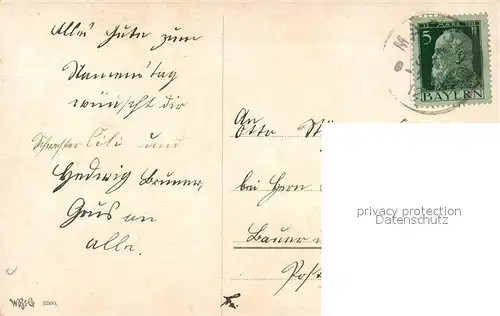 Alles Gute zum
Namenstag
wünscht dir
Schwester Cili und
Hedwig Bruner,
Grus an
alle.
W.R.&G. 5290.
5
BAYERN
An
Otto
bei Hern
Bauer
Post
privacy protection
Datenschutz